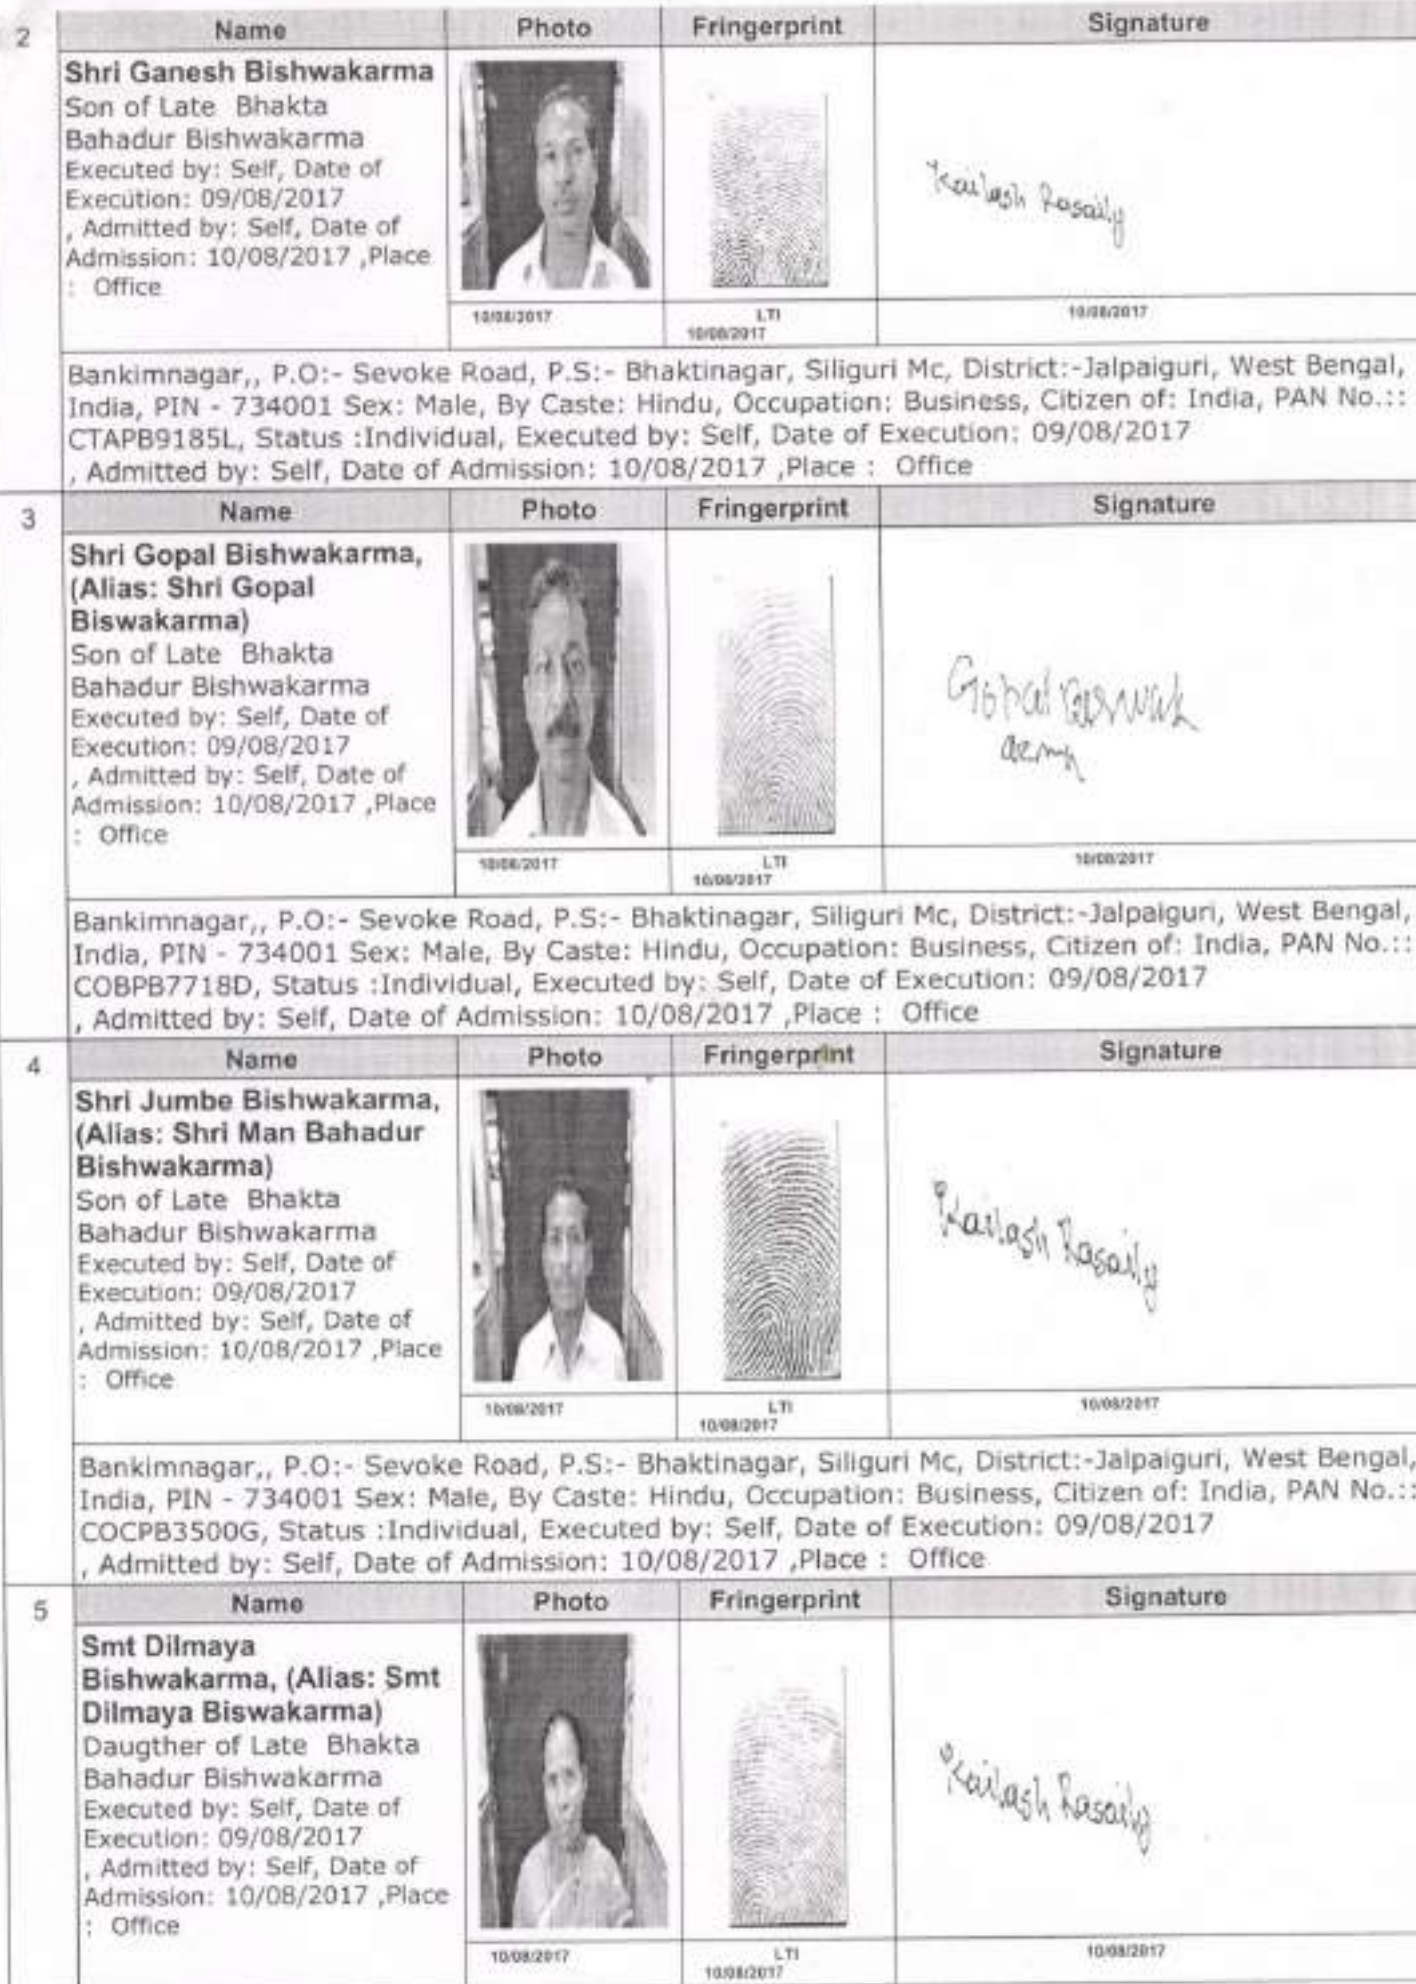 2
Name Photo Fringerprint Signature
Shri Ganesh Bishwakarma
Son of Late Bhakta
Bahadur Bishwakarma
Executed by: Self, Date of
Execution: 09/08/2017
, Admitted by: Self, Date of
Admission: 10/08/2017 ,Place
: Office
Kailash Rasaily
10/08/2017 LTI 10/08/2017
10/08/2017
Bankimnagar,, P.O:- Sevoke Road, P.S:- Bhaktinagar, Siliguri Mc, District:-Jalpaiguri, West Bengal,
India, PIN - 734001 Sex: Male, By Caste: Hindu, Occupation: Business, Citizen of: India, PAN No.::
CTAPB9185L, Status :Individual, Executed by: Self, Date of Execution: 09/08/2017
, Admitted by: Self, Date of Admission: 10/08/2017 ,Place : Office
3
Name Photo Fringerprint Signature
Shri Gopal Bishwakarma,
(Alias: Shri Gopal
Biswakarma)
Son of Late Bhakta
Bahadur Bishwakarma
Executed by: Self, Date of
Execution: 09/08/2017
, Admitted by: Self, Date of
Admission: 10/08/2017 ,Place
: Office
Gopal
10/08/2017 LTI 10/08/2017
10/08/2017
Bankimnagar,, P.O:- Sevoke Road, P.S:- Bhaktinagar, Siliguri Mc, District:-Jalpaiguri, West Bengal,
India, PIN - 734001 Sex: Male, By Caste: Hindu, Occupation: Business, Citizen of: India, PAN No.::
COBPB7718D, Status :Individual, Executed by: Self, Date of Execution: 09/08/2017
, Admitted by: Self, Date of Admission: 10/08/2017 ,Place : Office
4
Name Photo Fringerprint Signature
Shri Jumbe Bishwakarma,
(Alias: Shri Man Bahadur
Bishwakarma)
Son of Late Bhakta
Bahadur Bishwakarma
Executed by: Self, Date of
Execution: 09/08/2017
, Admitted by: Self, Date of
Admission: 10/08/2017 ,Place
: Office
Kailash Rasaily
10/08/2017 LTI 10/08/2017
10/08/2017
Bankimnagar,, P.O:- Sevoke Road, P.S:- Bhaktinagar, Siliguri Mc, District:-Jalpaiguri, West Bengal,
India, PIN - 734001 Sex: Male, By Caste: Hindu, Occupation: Business, Citizen of: India, PAN No.::
COCPB3500G, Status :Individual, Executed by: Self, Date of Execution: 09/08/2017
, Admitted by: Self, Date of Admission: 10/08/2017 ,Place : Office
5
Name Photo Fringerprint Signature
Smt Dilmaya
Bishwakarma, (Alias: Smt
Dilmaya Biswakarma)
Daugther of Late Bhakta
Bahadur Bishwakarma
Executed by: Self, Date of
Execution: 09/08/2017
, Admitted by: Self, Date of
Admission: 10/08/2017 ,Place
: Office
Kailash Rasaily
10/08/2017 LTI 10/08/2017
10/08/2017